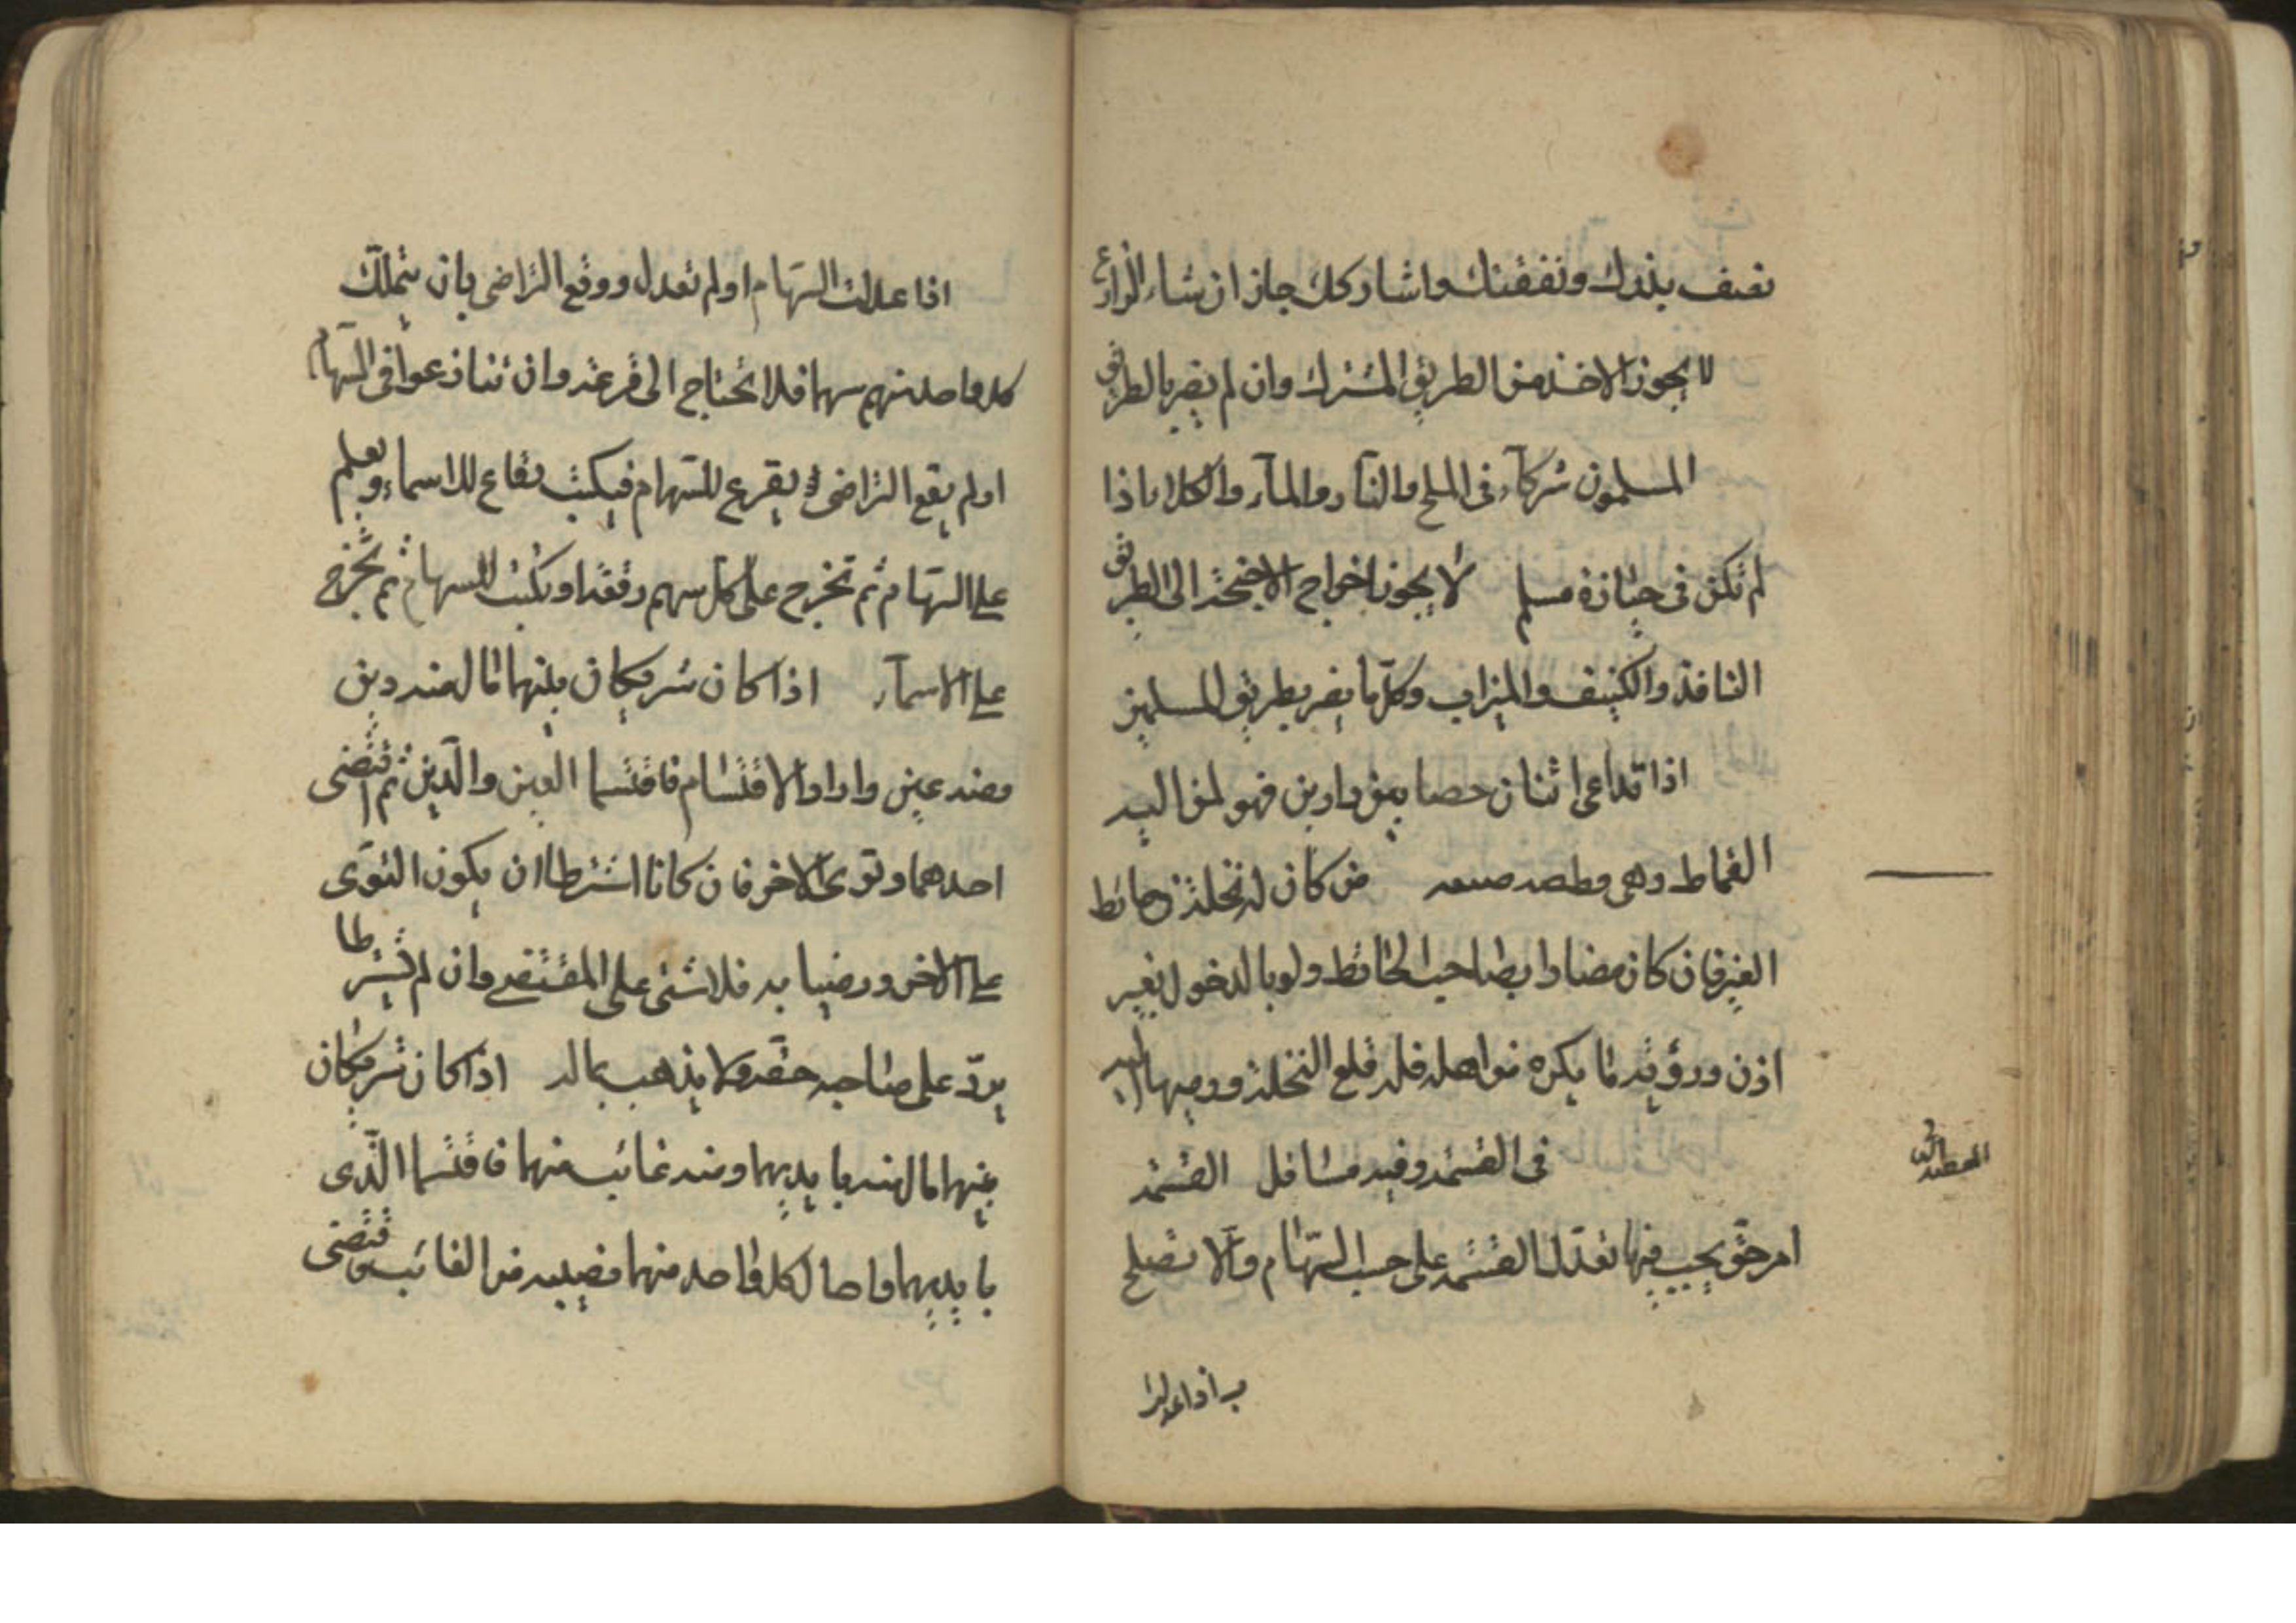 نصف بذرك ونفقتك واشاركك جاز ان شاء الزارع
لا يجوز الاخذ من الطريق المشترك وان لم يضر بالطريق
المسلمون شركآء فى الملح والنار والمآء والكلاء اذا
لم تكن فى حيازة مسلم لا يجوز اخراج الاجنحة الى الطريق
النافذ والكنيف والميزاب وكل ما يضر بطريق المسلمين
اذا تداعى اثنان خصا بين دارين فهو لمن اليه
القماط وهى من كان له نخلة فى حائط
الغير فان كان مضارا بصاحب الحائط ولو بالدخول بغير
اذن ورؤية ما يكره من اهله فله قلع النخلة ورميها اليه
فى القسمة وفيه مسائل القسمة
امر حق يجب فيها تعديل القسمة على حسب السهام والا تصلح
ب اذا عدلت
اذا عدلت السهام او لم تعدل ووقع التراضى بان يتملك
كل واحد منهم سهما فلا تحتاج الى قرعة وان تنازعوا فى السهام
او لم يقع التراضى يقرع للسهام فيكتب رقاع للاسماء ويعلم
على السهام ثم تخرج على كل سهم رقعة او يكتب للسهام ثم تخرج
على الاسمآء اذا كان شريكان بينهما مال منه دين
ومنه عين وارادا الاقتسام فاقتسما العين والدين ثم اقتضى
احدهما وتوى الاخر فان كانا اشترطا ان يكون التوى
على الاخر ورضيا به فلا شئ على المقتضى وان لم يشترطا
يرد على صاحبه حقه ولا يذهب بماله اذا كان شريكان
بينهما مال منه بايديهما ومنه غائب عنهما فاقتسما الذى
بايديهما واحال كل واحد منهما نصيبه من الغائب وقتضى